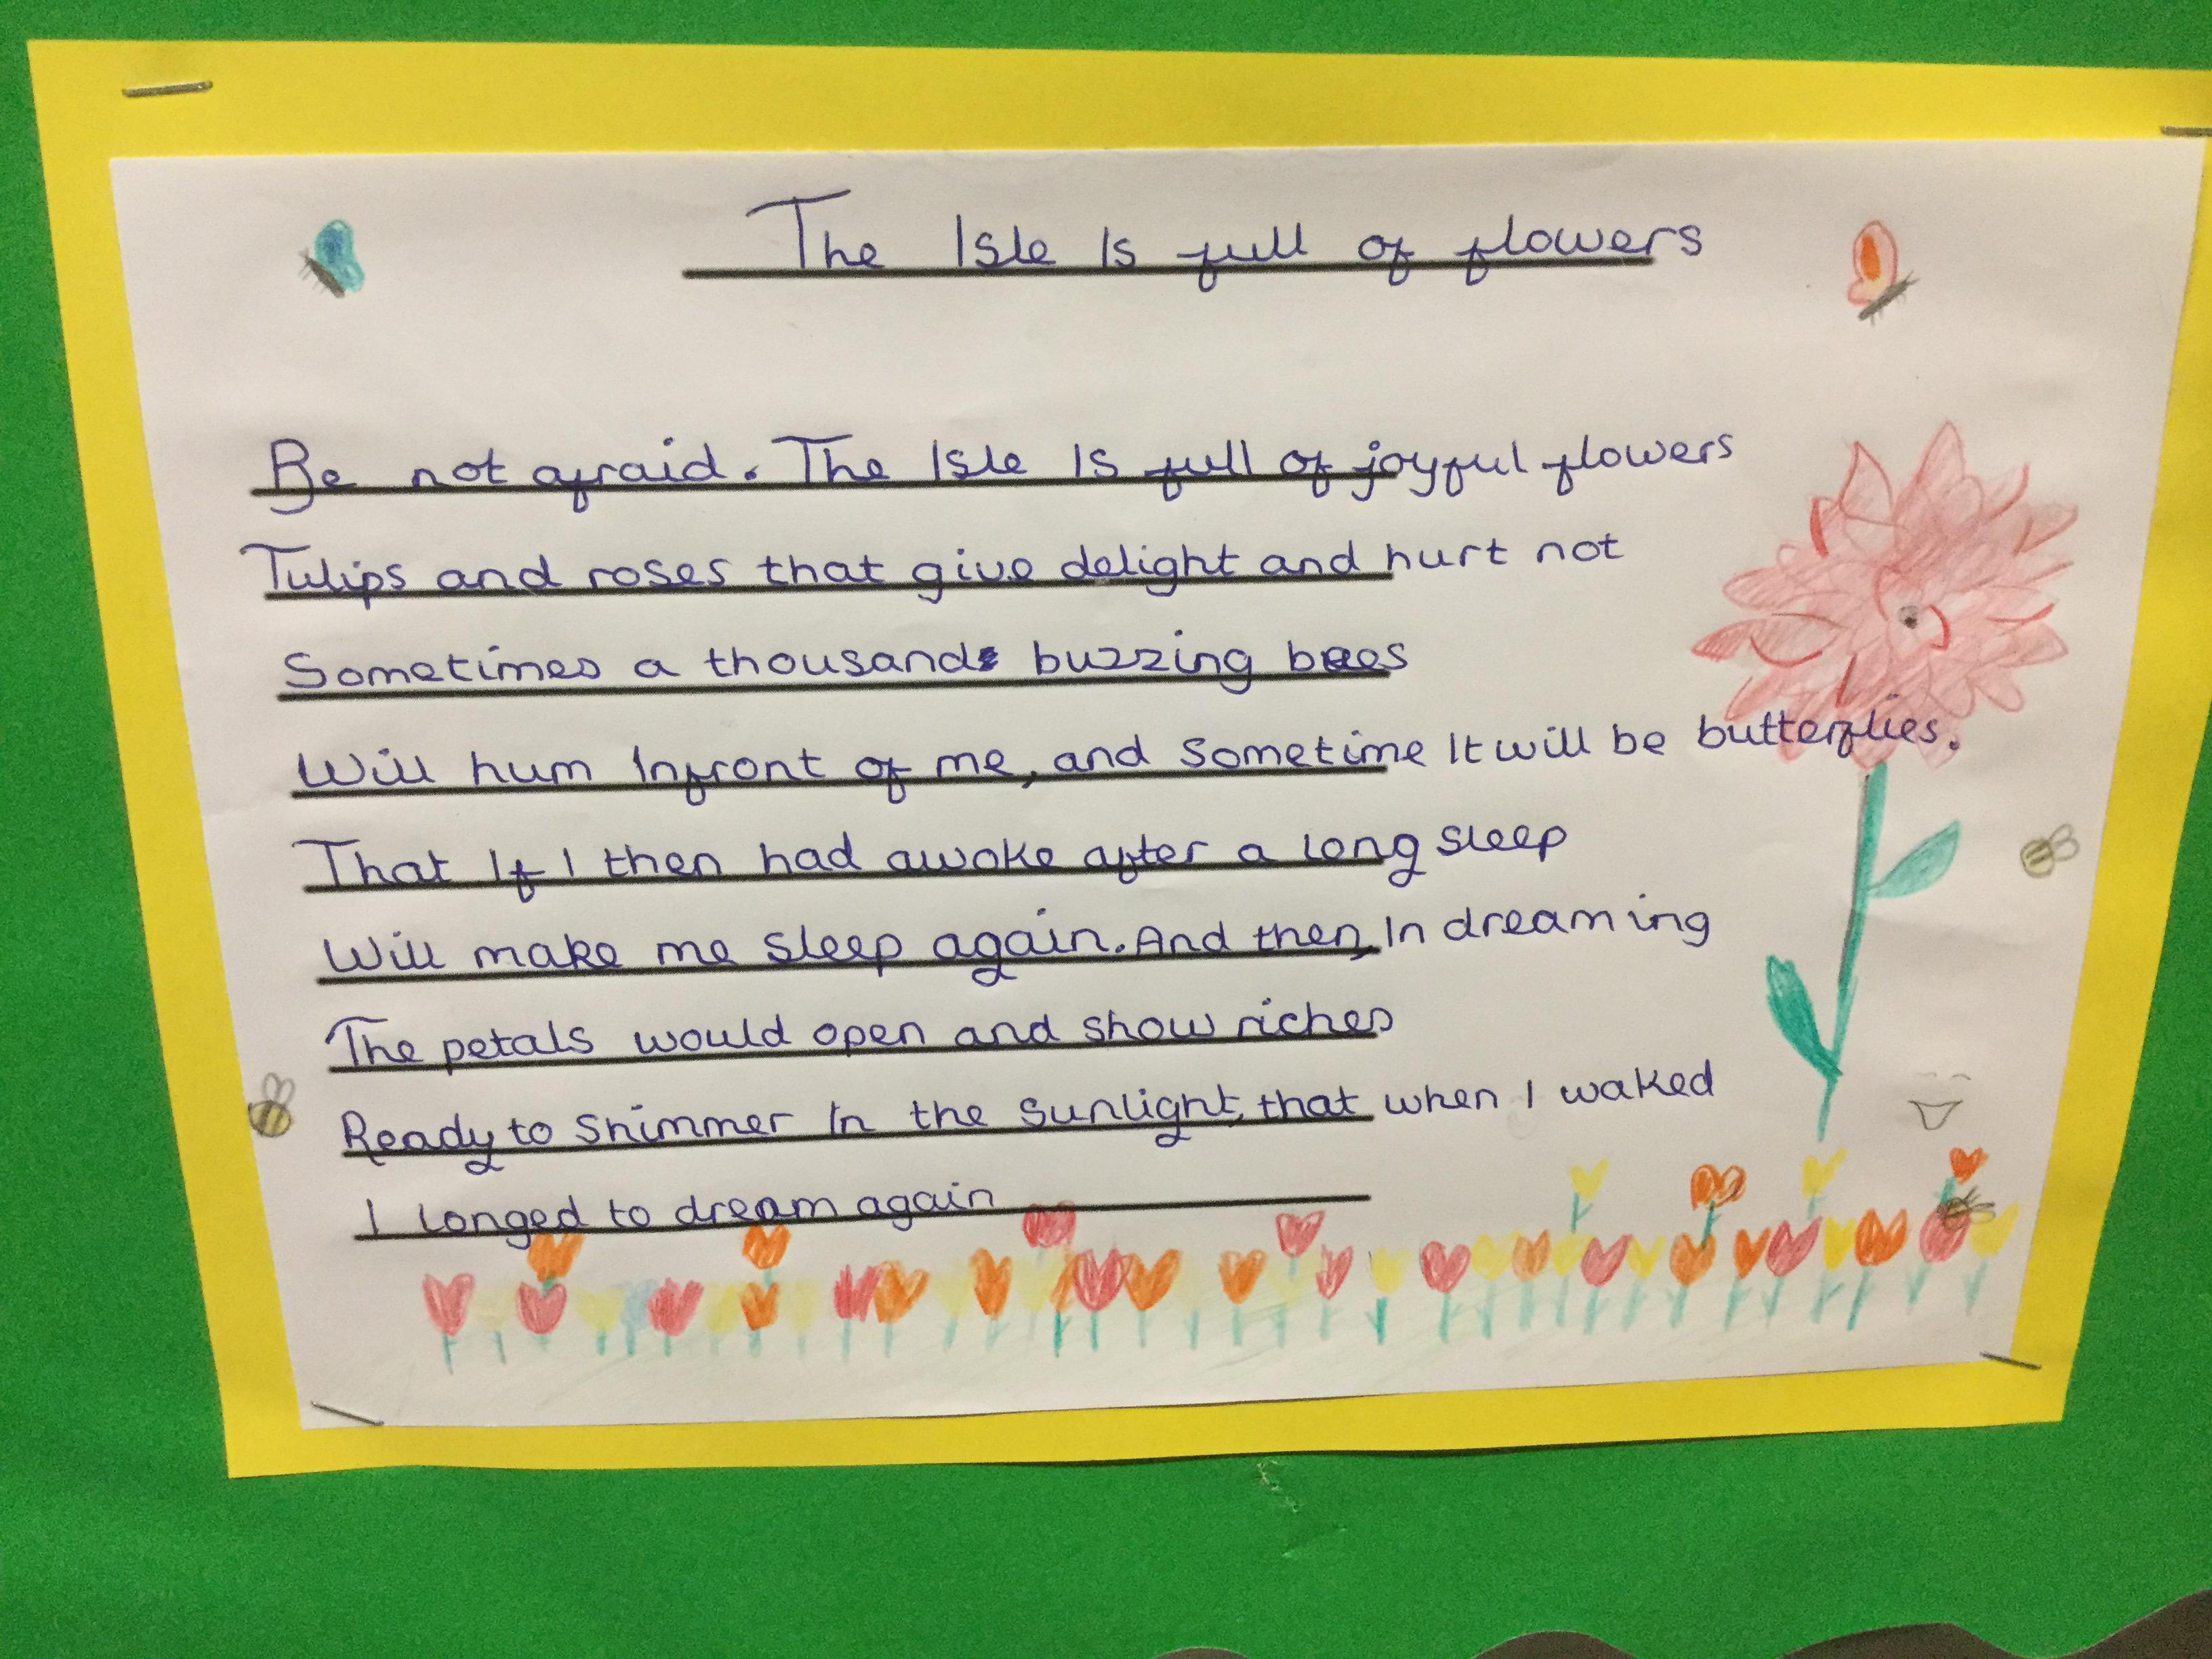 The Isle Is full of flowers
Be not afraid. The Isle Is full of joyful flowers
Tulips and roses that give delight and hurt not
Sometimes a thousands buzzing bees
Will hum Infront of me, and sometime It will be butterflies.
That If I then had awoke after a long sleep
Will make me sleep again. And then, In dreaming
The petals would open and show riches
Ready to shimmer In the sunlight, that when I waked
I longed to dream again